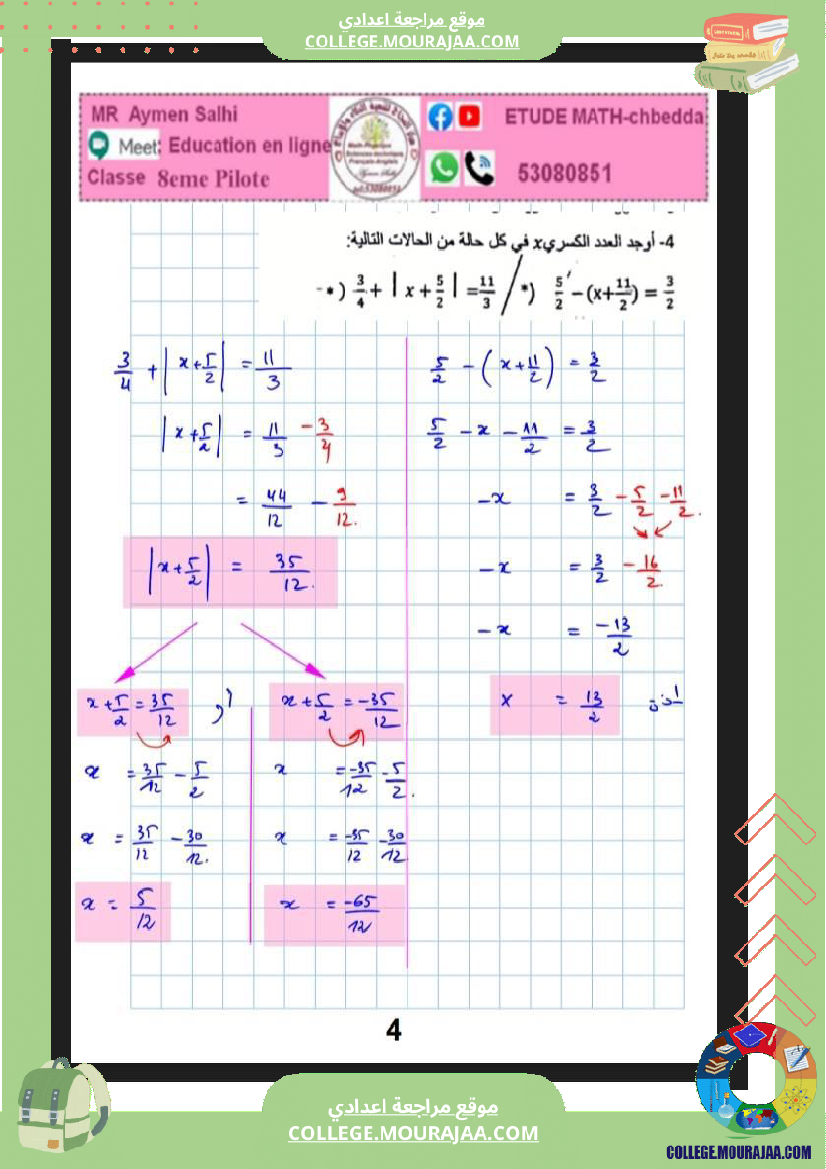 موقع مراجعة اعدادي
COLLEGE.MOURAJAA.COM
MR Aymen Salhi
Meet: Education en ligne
Classe 8eme Pilote
ETUDE MATH-chbedda
53080851
4- أوجد العدد الكسري x في كل حالة من الحالات التالية:
*) 3/4 + | x + 5/2 | = 11/3 / *) 5/2 - (x + 11/2) = 3/2
3/4 + |x + 5/2| = 11/3
|x + 5/2| = 11/3 - 3/4
= 44/12 - 9/12.
|x + 5/2| = 35/12.
x + 5/2 = 35/12 أو x + 5/2 = -35/12
x = 35/12 - 5/2
x = 35/12 - 30/12.
x = 5/12
x = -35/12 - 5/2.
x = -35/12 - 30/12
x = -65/12
5/2 - (x + 11/2) = 3/2
5/2 - x - 11/2 = 3/2
-x = 3/2 - 5/2 - 11/2.
-x = 3/2 - 16/2.
-x = -13/2
إذن x = 13/2
4
موقع مراجعة اعدادي
COLLEGE.MOURAJAA.COM
COLLEGE.MOURAJAA.COM